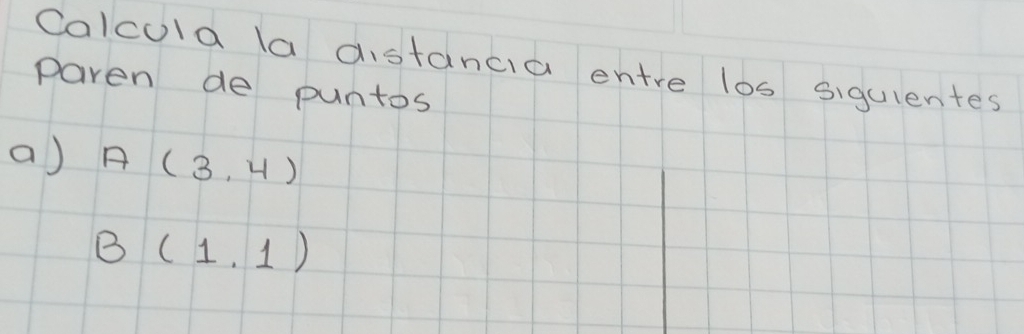 Calcula la distancia entre los siguientes
paren de puntos
a) A (3,4)
B (1,1)